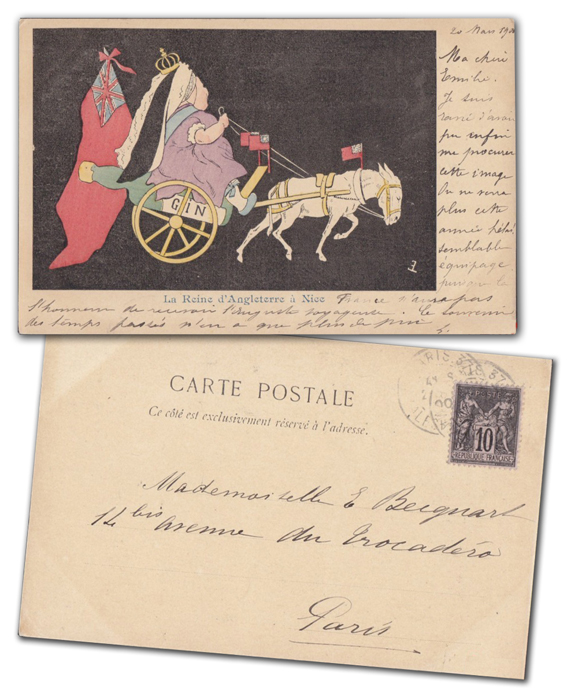 24 Mars 1900
Ma chère
Emilie.
Je suis
ravie d'avoir
pu enfin
me procurer
cette image
On ne verra
plus cette
année hélas
semblable
équipage
puisque la
GIN
La Reine d'Angleterre à Nice France n'aura pas
l'honneur de recevoir l'auguste voyageuse. Le souvenir
des temps passés n'en a que plus de prix
CARTE POSTALE
Ce côté est exclusivement réservé à l'adresse.
PARIS
10
REPUBLIQUE FRANÇAISE
Mademoiselle E Becquart
14 bis avenue du Trocadéro
Paris